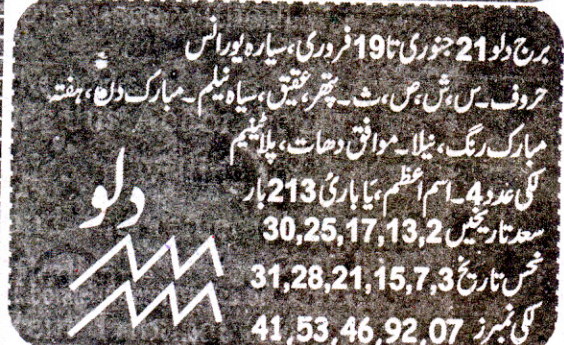 برج دلو 21 جنوری تا 19 فروری، سیارہ یورانس
حروف۔ س، ش، ص، ث۔ پتھر، عقیق، سیاہ نیلم۔ مبارک دن، ہفتہ
مبارک رنگ، نیلا۔ موافق دھات، پلاٹینیم
لکی عدد 4۔ اسم اعظم، یَا بَارِیُٔ 213 بار
سعد تاریخیں 2,13,17,25,30
نحس تاریخ 3,7,15,21,28,31
لکی نمبرز 07,92,46,53,41
دلو